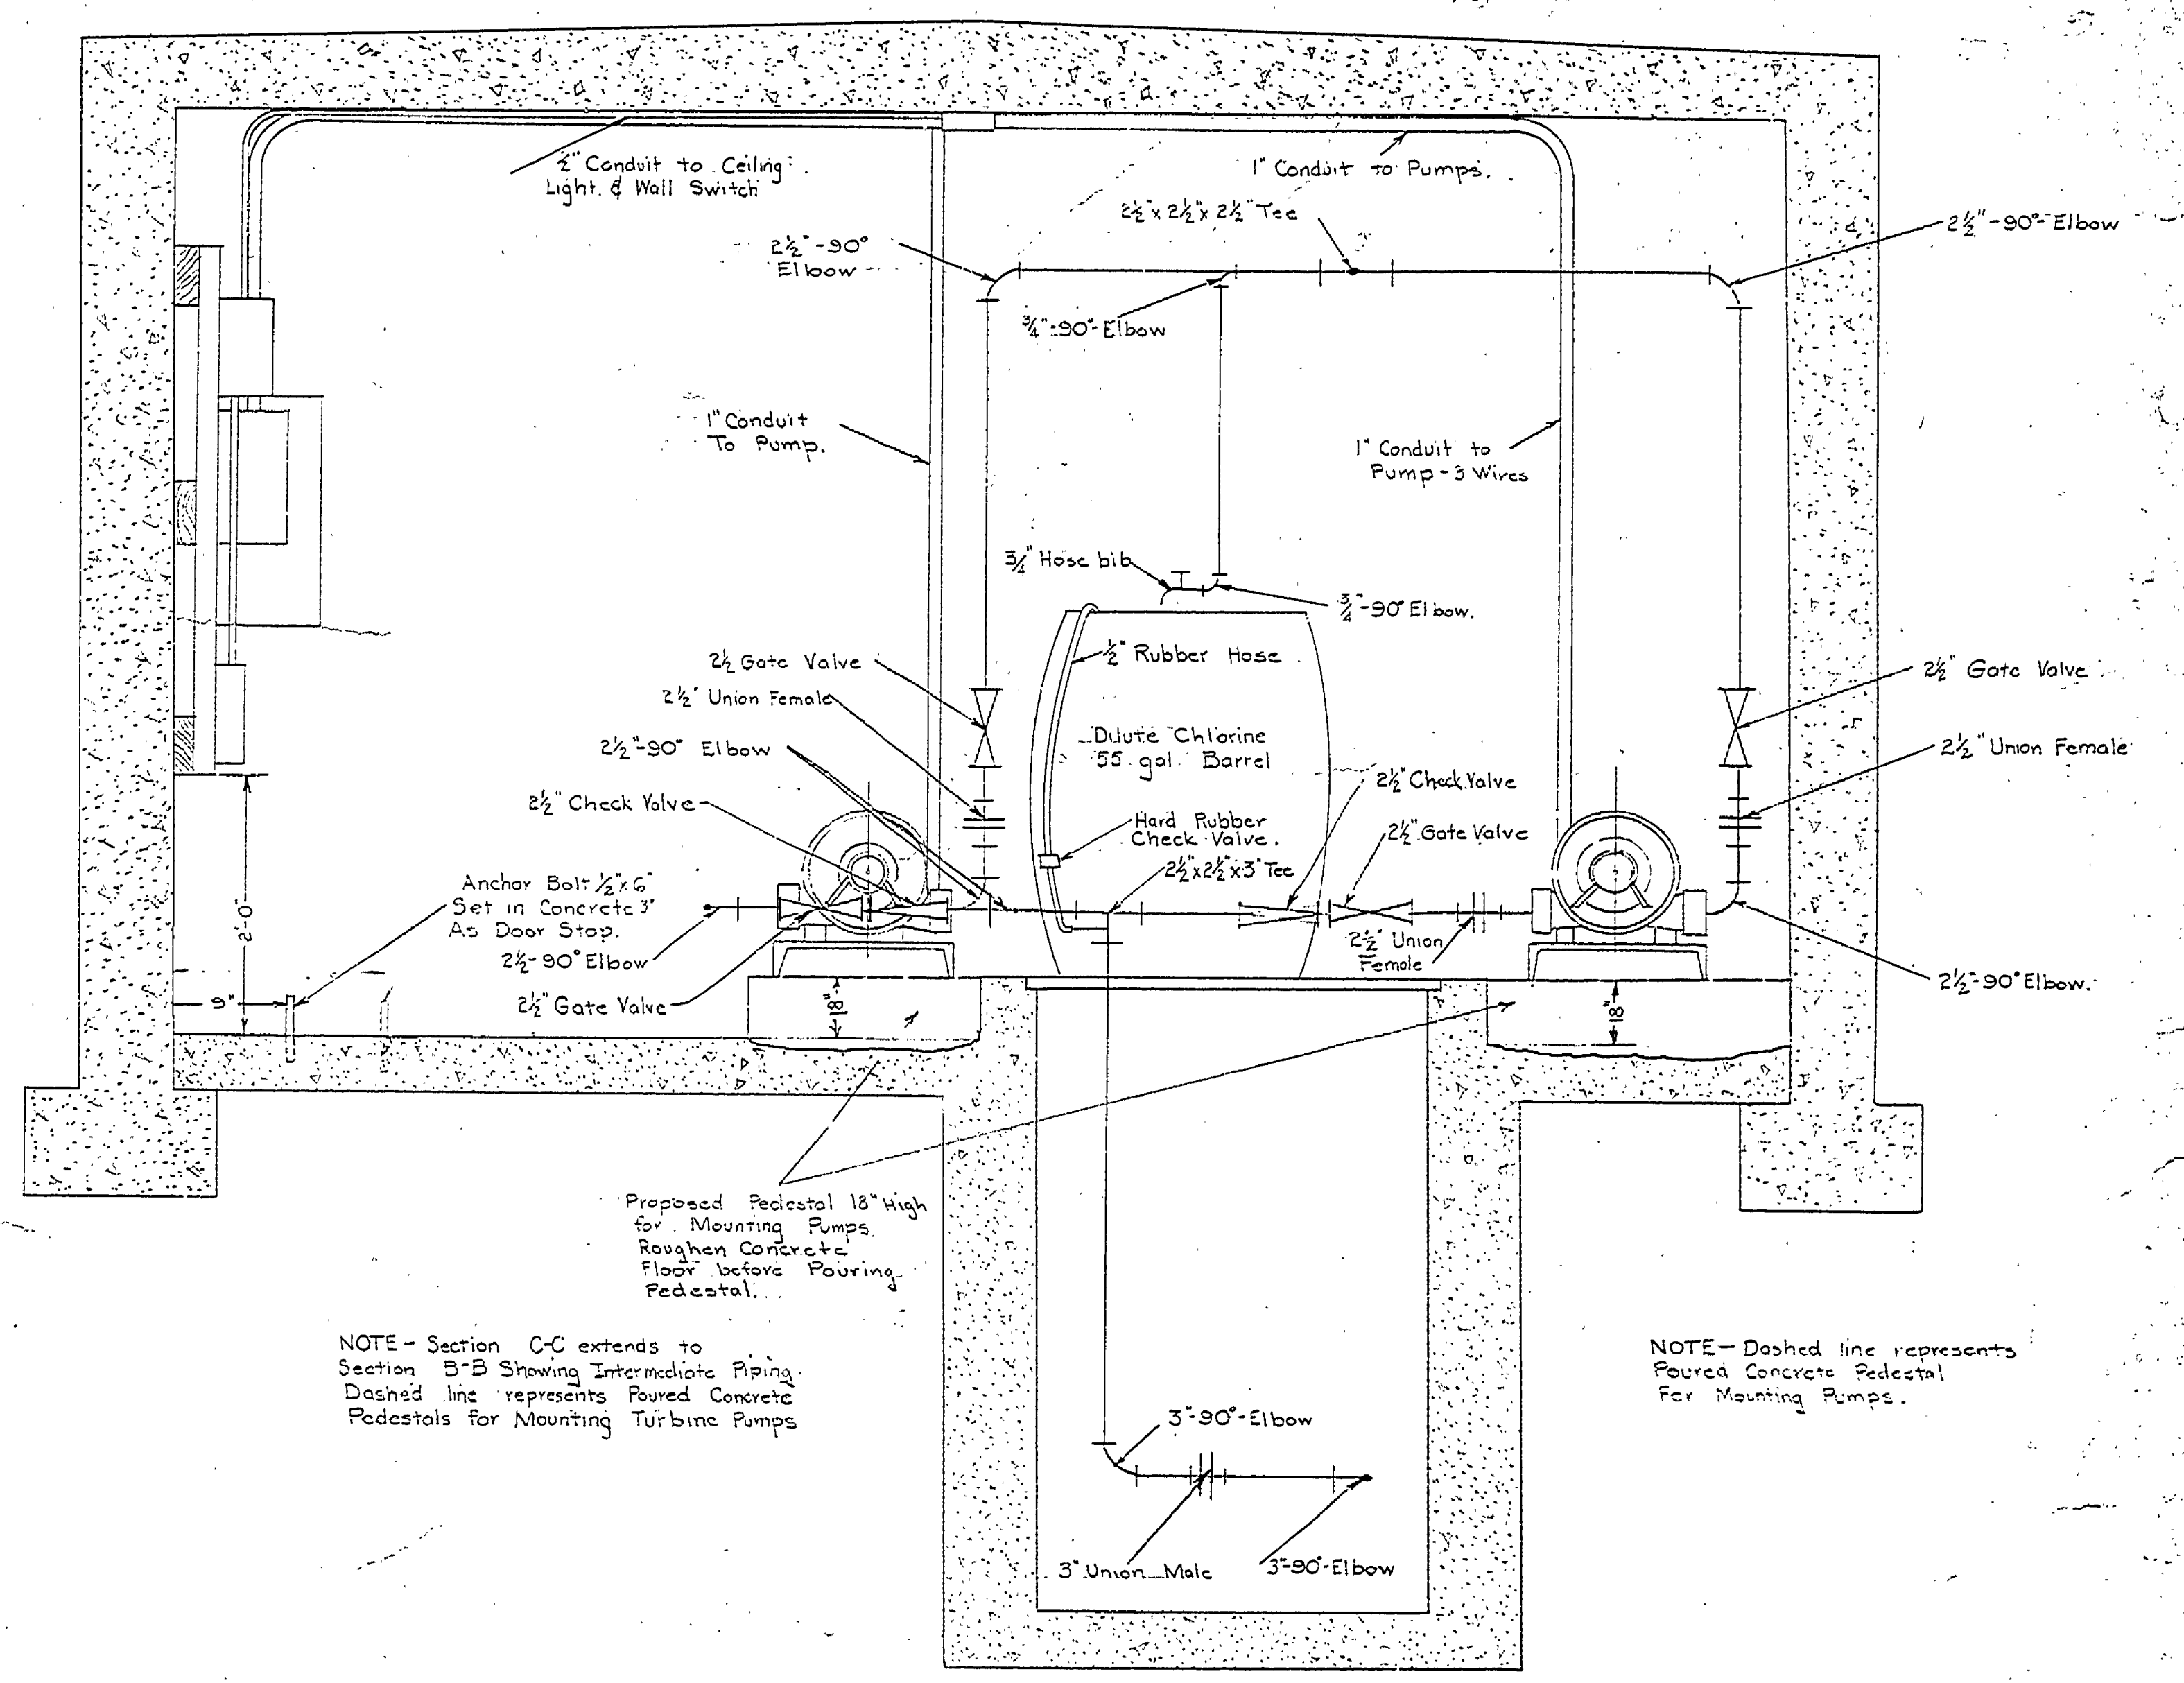 ½" Conduit to Ceiling
Light & Wall Switch
1" Conduit to Pumps.
2½" x 2½" x 2½" Tee
2½"-90°-Elbow
2½"-90°
Elbow
¾"-90°-Elbow
1" Conduit
To Pump.
1" Conduit to
Pump-3 Wires
¾" Hose bib
¾"-90° Elbow.
2½ Gate Valve
½" Rubber Hose
2½" Gate Valve
2½" Union Female
2½"-90° Elbow
Dilute Chlorine
55 gal. Barrel
2½" Union Female
2½" Check Valve
2½" Check Valve
Hard Rubber
Check Valve.
2½" Gate Valve
2½"x2½"x3" Tee
Anchor Bolt ½"x6"
Set in Concrete 3"
As Door Stop.
2'-0"
2½-90° Elbow
2½" Union
Female
2½"-90° Elbow.
9"
2½" Gate Valve
18"
18"
Proposed Pedestal 18" High
for Mounting Pumps.
Roughen Concrete
Floor before Pouring
Pedestal.
NOTE- Section C-C extends to
Section B-B Showing Intermediate Piping.
Dashed line represents Poured Concrete
Pedestals for Mounting Turbine Pumps
NOTE- Dashed line represents
Poured Concrete Pedestal
For Mounting Pumps.
3"-90°-Elbow
3" Union Male
3"-90°-Elbow